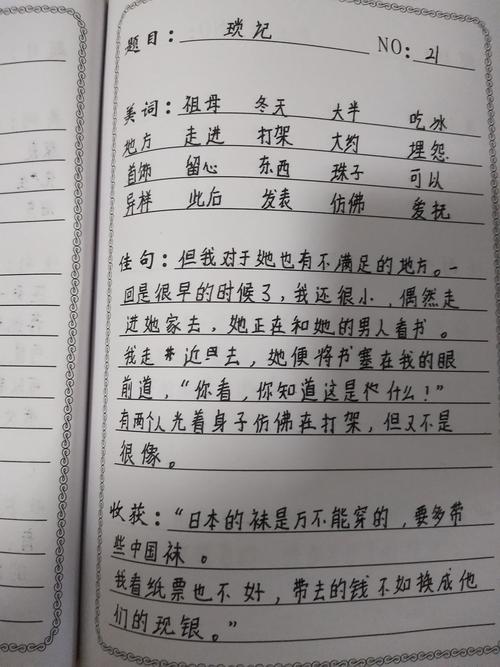 题目：琐记 NO：21
美词：祖母 冬天 大半 吃冰
地方 走进 打架 大约 埋怨
首饰 留心 东西 珠子 可以
异样 此后 发表 仿佛 爱抚
佳句：但我对于她也有不满足的地方。一
回是很早的时候了，我还很小，偶然走
进她家去，她正在和她的男人看书。
我走近去，她便将书塞在我的眼
前道，“你看，你知道这是什么！”
有两个人光着身子仿佛在打架，但又不是
很像。
收获：“日本的袜是万不能穿的，要多带
些中国袜。
我看纸票也不好，带去的钱不如换成他
们的现银。”